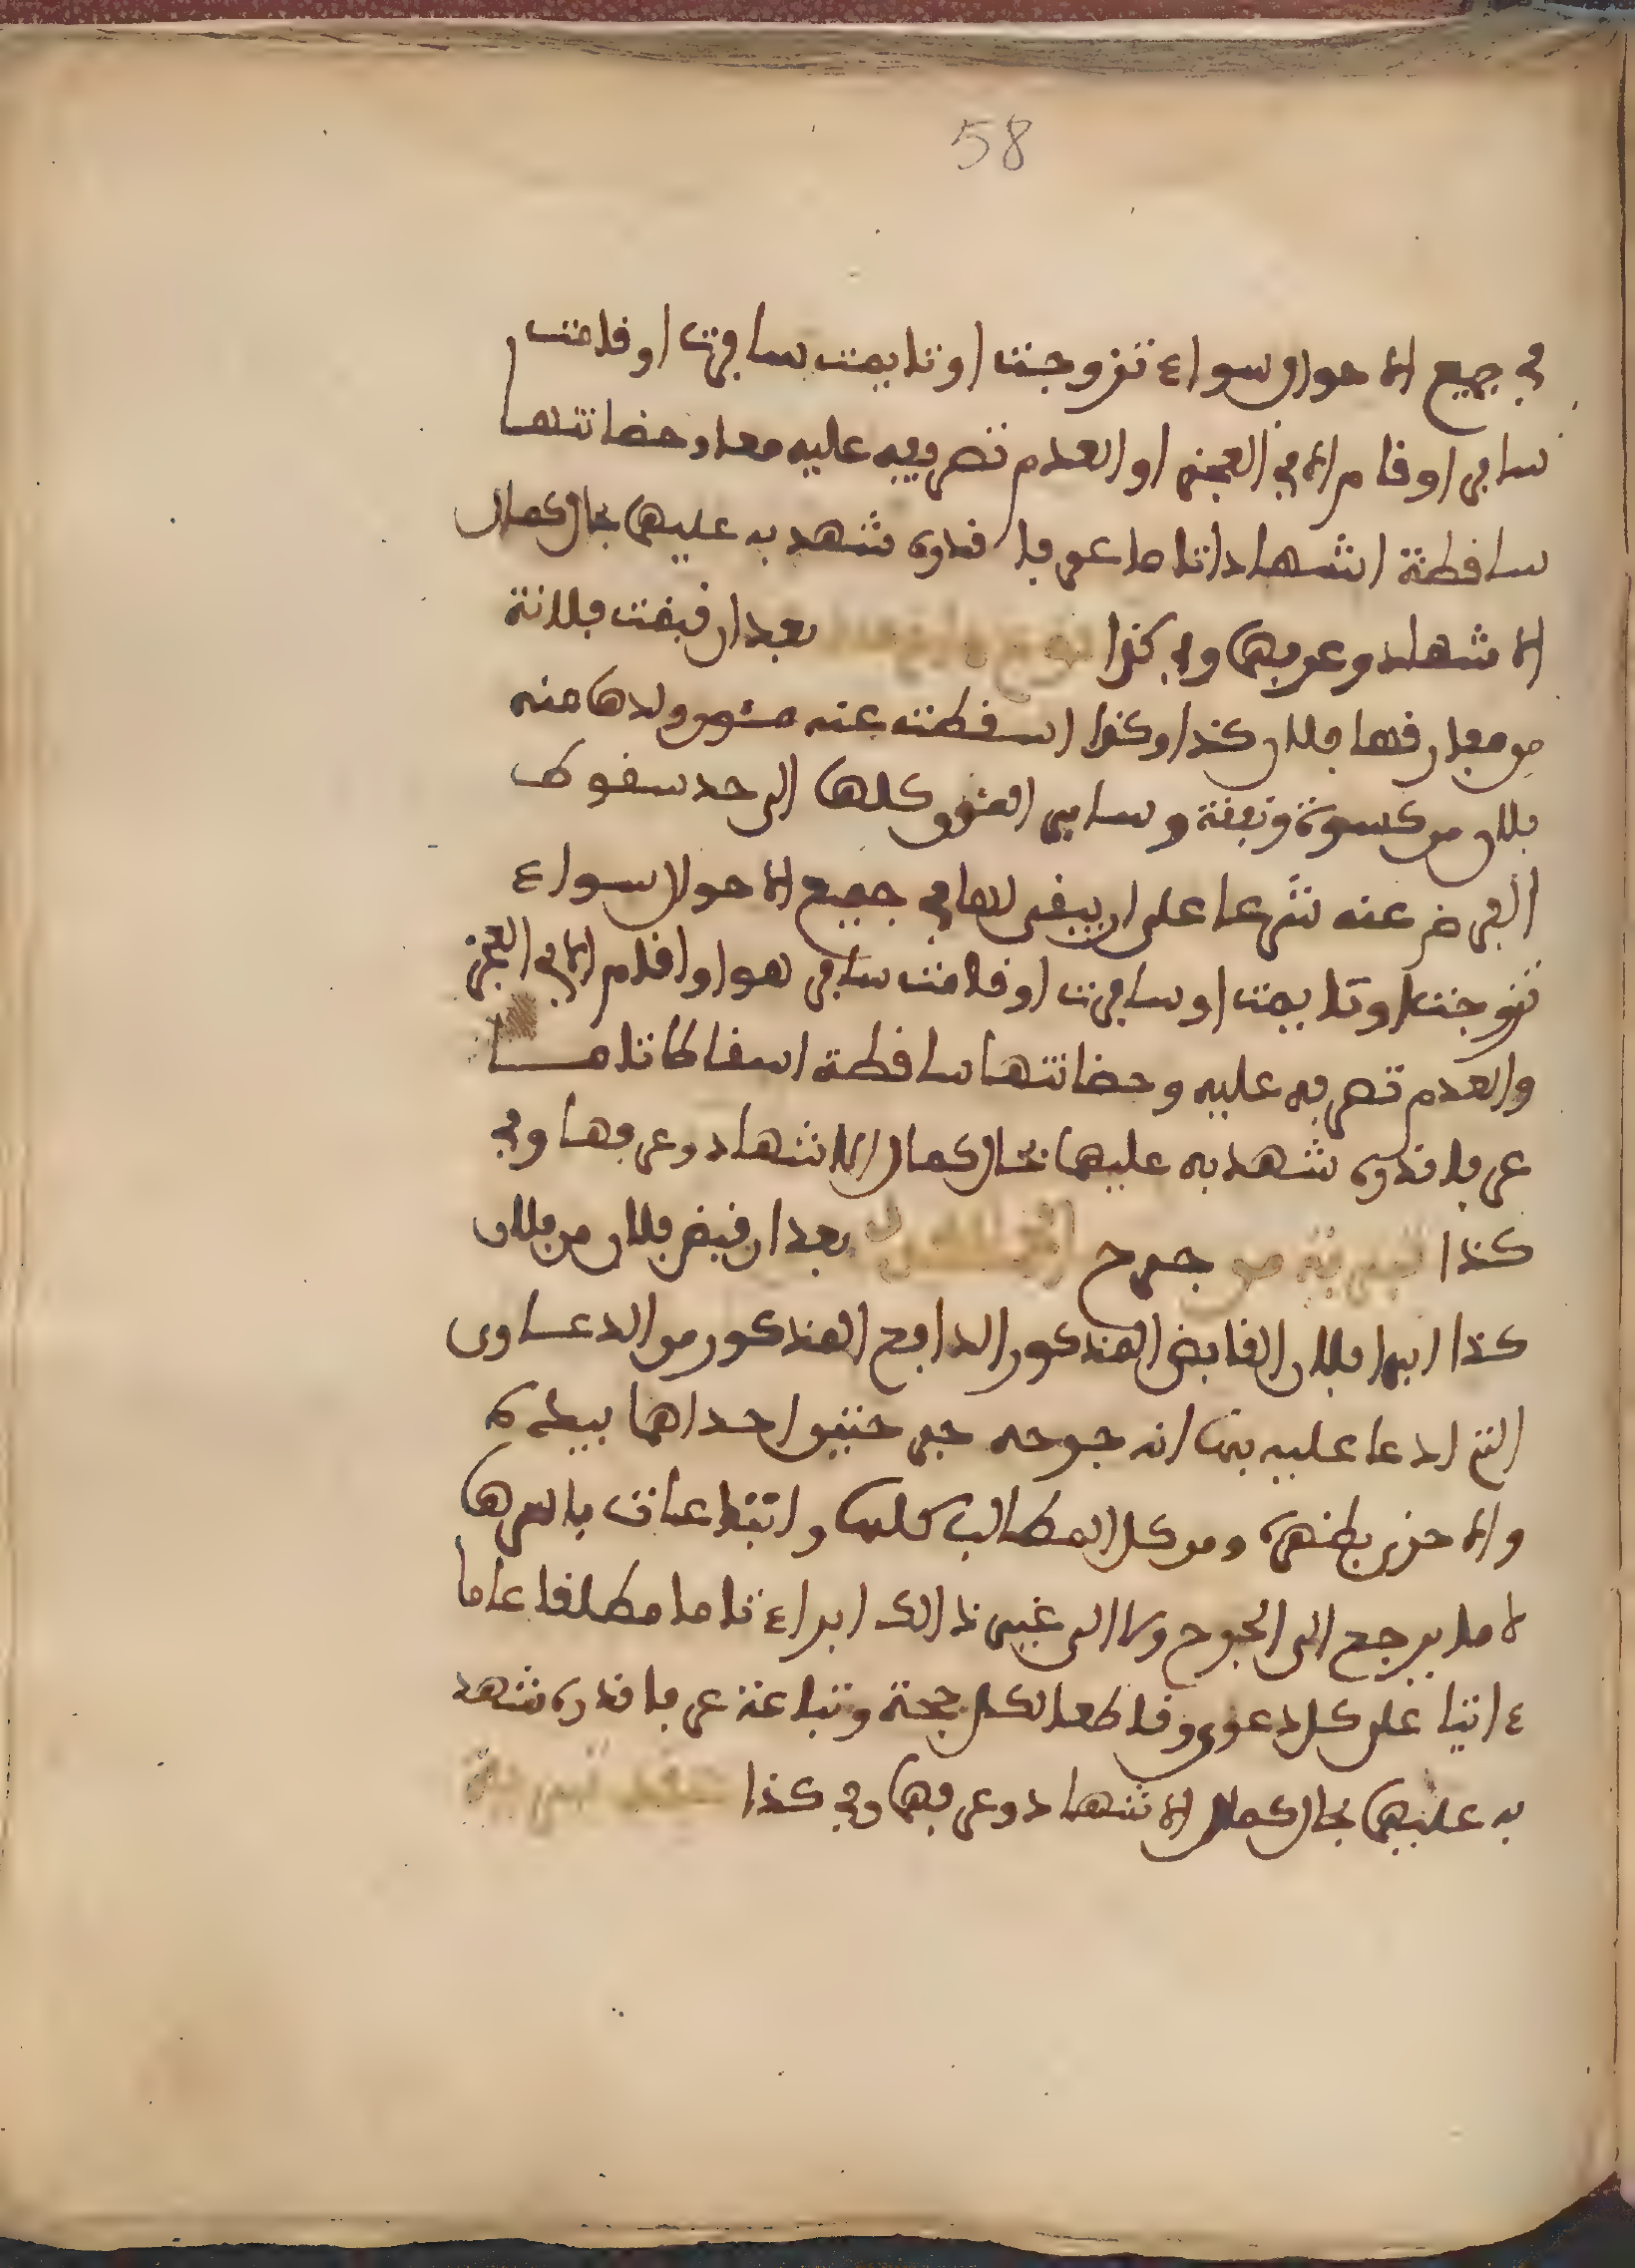 58
في جميع الاحوال سواء تزوجت او تايمت سافرت او قامت
سافر او قام الا في العجز او العدم تصرفيه عليه معا وحضانتها
ساقطة اشهادا تاما عرفا قدره شهد به عليهما بحال كمال
الاشهاد وعرفهما وفي كذا بعد ان قبضت فلانة
من مفارقها فلان كذا وكذا اسقطت عنه مئون ولدها منه
فلان من كسوة ونفقة وساير المئون كلها الى حد سقوط
الفرض عنه شرعا على ان يبقى لها في جميع الاحوال سواء
تزوجت او تايمت او سافرت او قامت سافر هو او اقام الا في العجز
والعدم تصرفه عليه وحضانتها ساقطة اسقاطا تاما
عرفا قدره شهد به عليهما بحال كمال الاشهاد وعرفهما وفي
كذا تبرية من جرح بعد ان قبض فلان من فلان
كذا ابرا فلان القابض المذكور الدافع المذكور من الدعاوى
التي ادعا عليه بها انه جوحه جرحتين احداها بيده
والاخرى بطنهى ومن كل المطالب كلها واتباعات باسرها
لا ما يرجع الى الجوح ولا الى غيى ذالك ابراء تاما مطلقا عاما
ءاتيا على كل دعوى وقاطعا لكل حجة وتباعة عرفا قدره شهد
به عليهما بحال كمال الاشهاد وعرفهما وفي كذا عقد تبرية